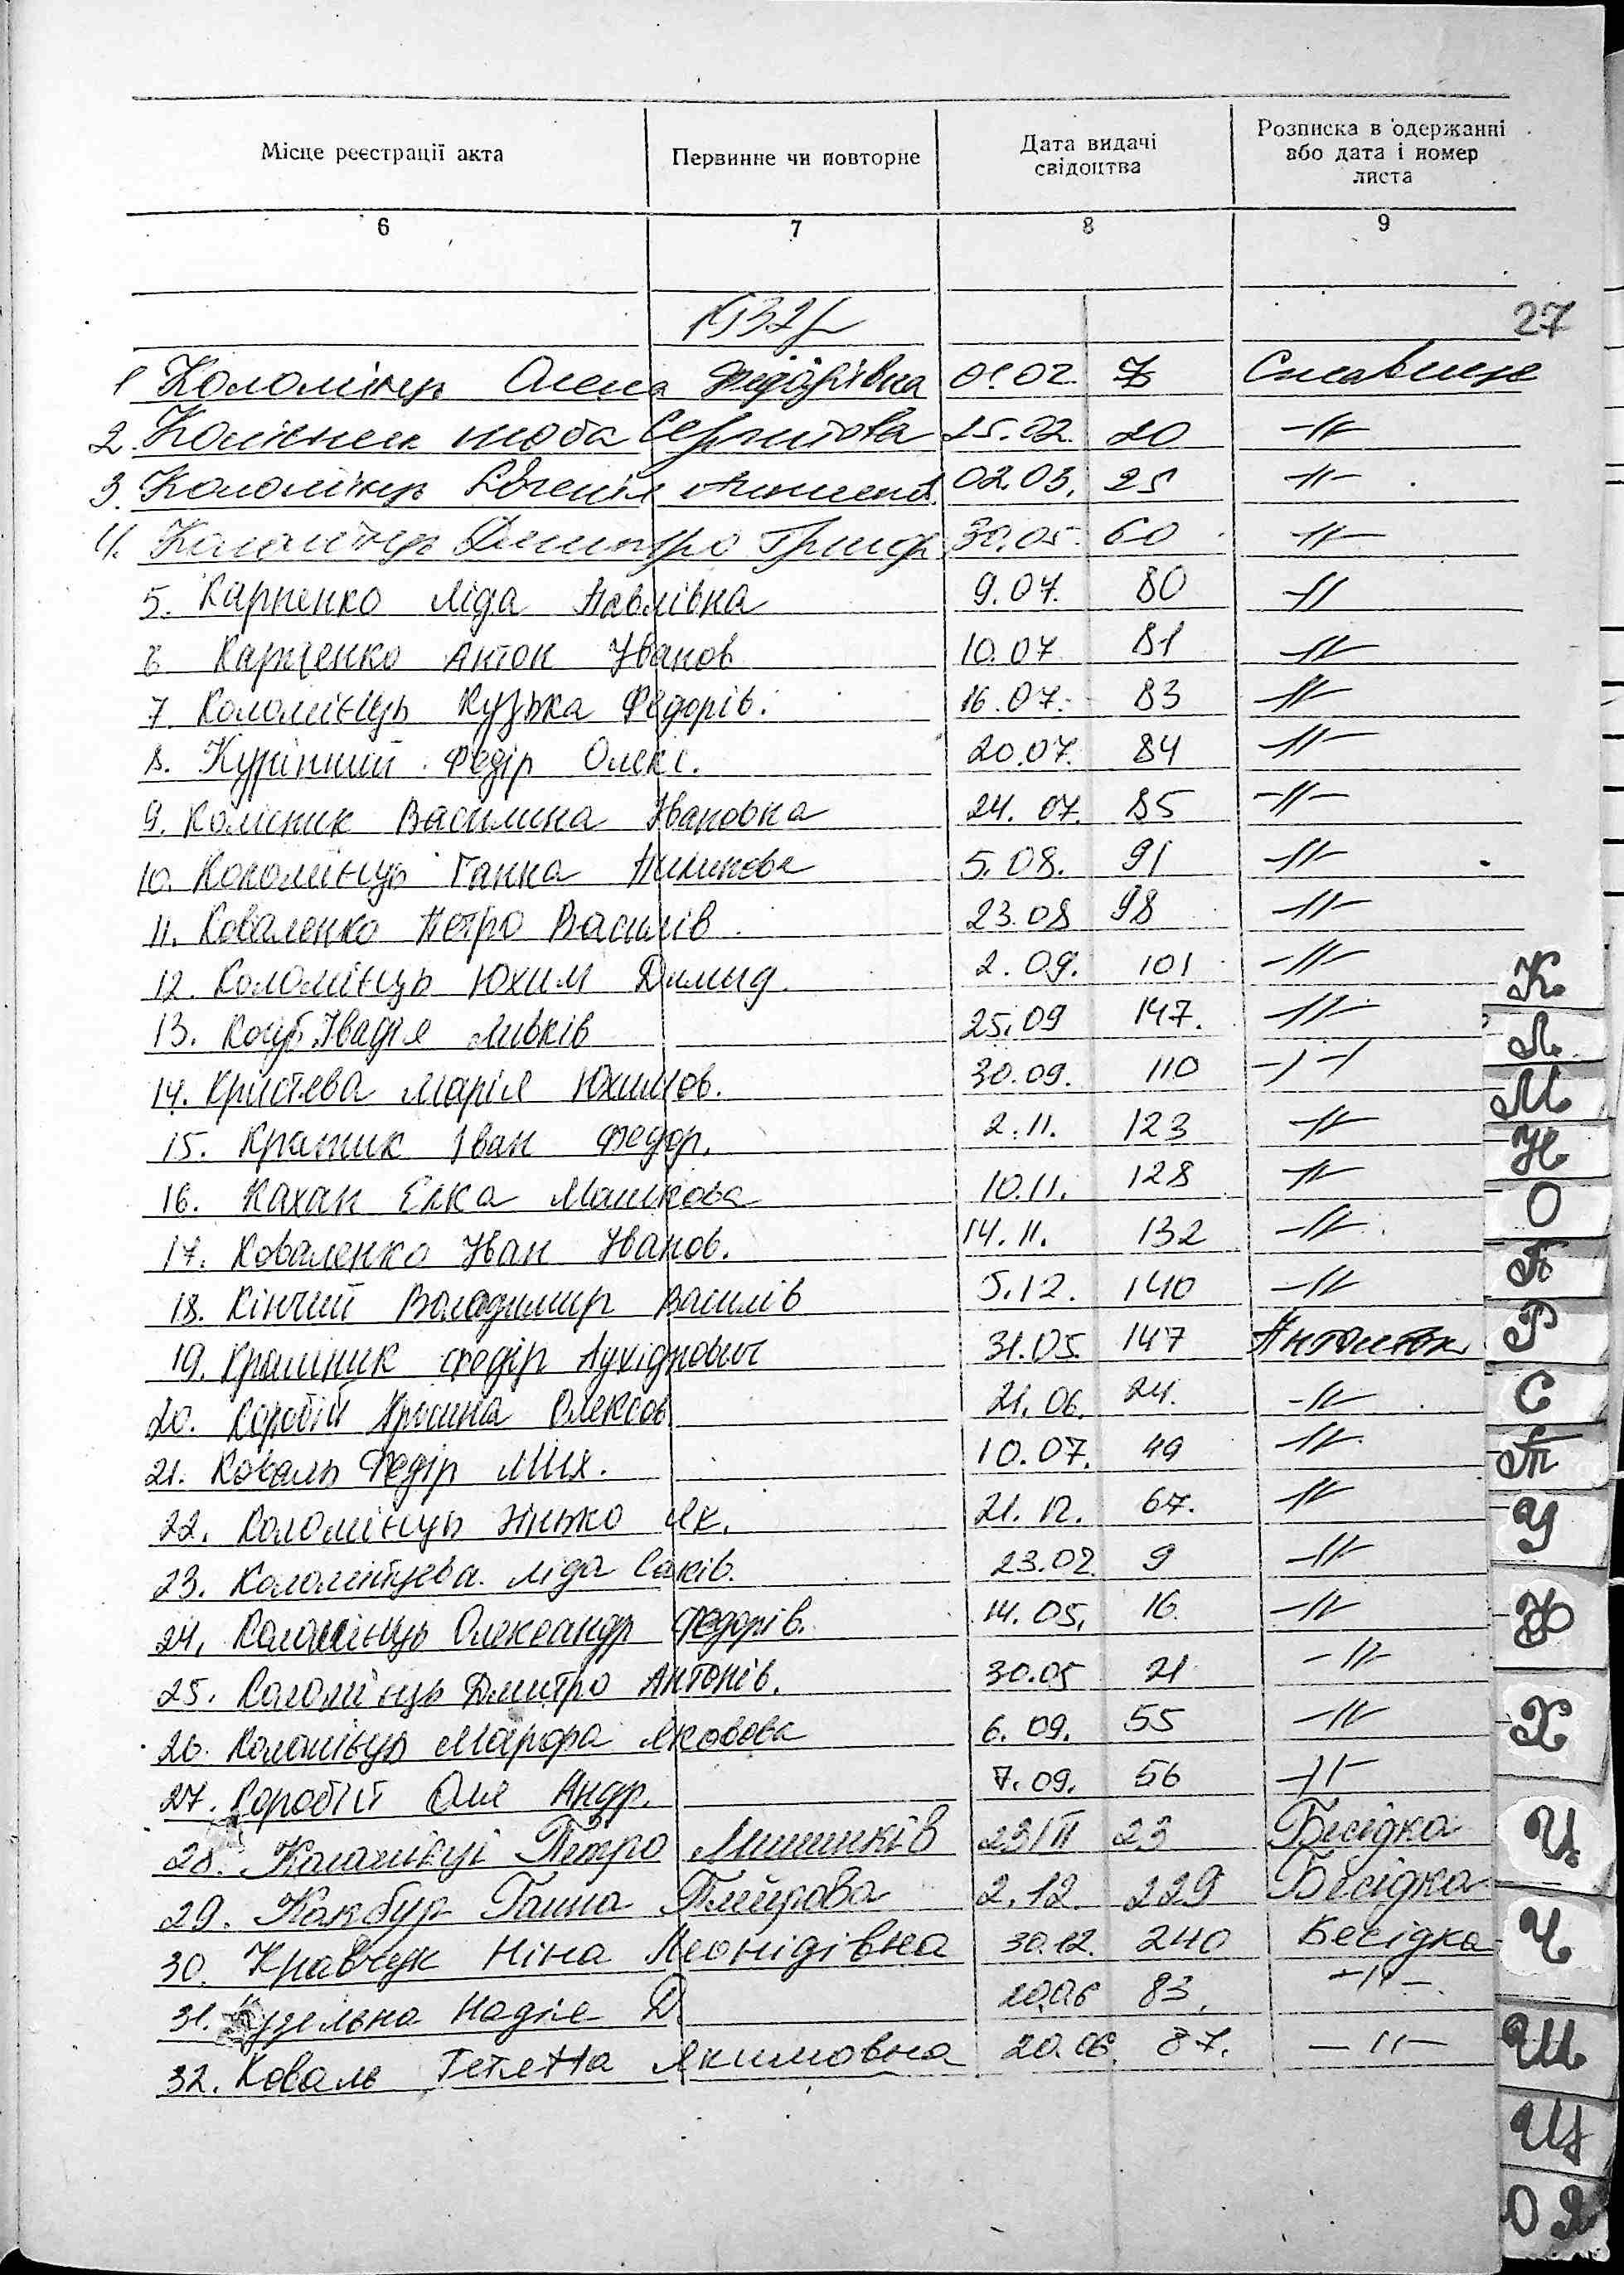 Місце реєстрації акта Первинне чи повторне Дата видачі свідоцтва Розписка в одержанні або дата і номер листа
6 7 8 9
27
1 Коломієць Олена 01.02. 7 Ставище
2. 25.02. 20 -//-
3. Коломієць Євгенія 02.03. 25 -//-
4. Коломієць Дмитро Григор 30.05. 60 -//-
5. Карпенко Ліда Павлівна 9.07. 80 -//
6 Карпенко Антон Іванов 10.07 81 -//-
7. Коломієць Кузька Федорів. 16.07. 83 -//-
8. Курінний Федір Олекс. 20.07. 84 -//-
9. Колісник Василина Івановна 24.07. 85 -//-
10. Коломієць Ганна 5.08. 91 -//-
11. Коваленко Петро Василів 23.08 98 -//-
12. Коломієць Юхим Димид. 2.09. 101 -//-
13. 25.09 147. -//-
14. Кристева Марія Юхимов. 30.09. 110 -//-
15. Іван Федор. 2.11. 123 -//-
16. Кахан Елка 10.11. 128 -//-
17. Коваленко Іван Іванов. 14.11. 132 -//-
18. Кінчий Володимир Василів 5.12. 140 -//-
19. Федір 31.05. 147
20. Коробій Олексов 21.06. 24. -//-
21. Коваль Федір Мих. 10.07. 49 -//-
22. Коломієць Зінько Як. 21.12. 67. -//-
23. Ліда Саків. 23.02. 9 -//-
24. Коломієць Олександр Федорів. 14.05. 16. -//-
25. Коломієць Дмитро Антонів. 30.05 21 -//-
26. Коломієць Марфа Яковова 6.09. 55 -//-
27. Коробій Оля Андр. 7.09. 56 -//-
28. Петро 23/II 23 Бесідка
29. Ганна 2.12. 229 Бесідка
30. Кравчук Ніна Леонідівна 30.12. 240 Бесідка
31. Надія Д. 83. -//-
32. Коваль Тетяна Якимовна 20.06. 87. -//-
К
Л
М
Н
О
П
Р
С
Т
У
Ф
Х
Ц
Ч
Ш
Щ
Ю Я